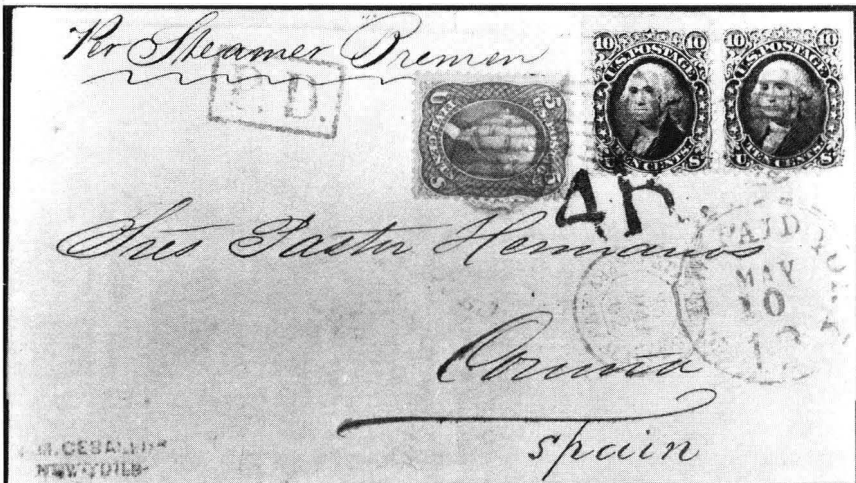 Per Steamer Bremen
P.D.
10 U.S. POSTAGE 10
TEN CENTS
10 U.S. POSTAGE 10
TEN CENTS
5
4R
Sres Pastor Hermanos
PAID
MAY
10
12
Coruña
Spain